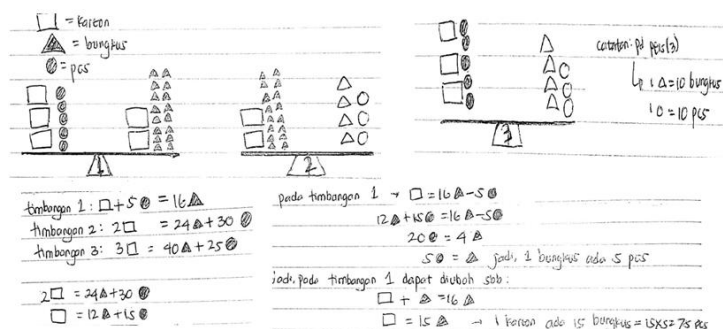 □ = karton
▲ = bungkus
● = pcs
1
2
3
catatan: pd pers(3)
↳ 1 △ = 10 bungkus
1 O = 10 pcs
timbangan 1: □ + 5 ● = 16 ▲
timbangan 2: 2 □ = 24 ▲ + 30 ●
timbangan 3: 3 □ = 40 ▲ + 25 ●
2 □ = 24 ▲ + 30 ●
□ = 12 ▲ + 15 ●
pada timbangan 1 → □ = 16 ▲ - 5 ●
12 ▲ + 15 ● = 16 ▲ - 5 ●
20 ● = 4 ▲
5 ● = ▲ jadi, 1 bungkus ada 5 pcs
jadi, pada timbangan 1 dapat diubah sbb:
□ + ▲ = 16 ▲
□ = 15 ▲ → 1 karton ada 15 bungkus = 15x5 = 75 pcs